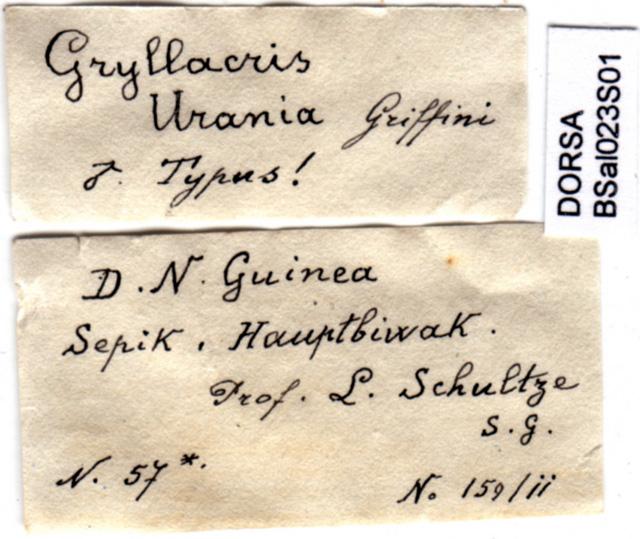 Gryllacris
Urania Griffini
♂. Typus!
D. N. Guinea
Sepik. Hauptbiwak.
Prof. L. Schultze
S. G.
N. 57*.
No 159/ii
DORSA
BSal023S01